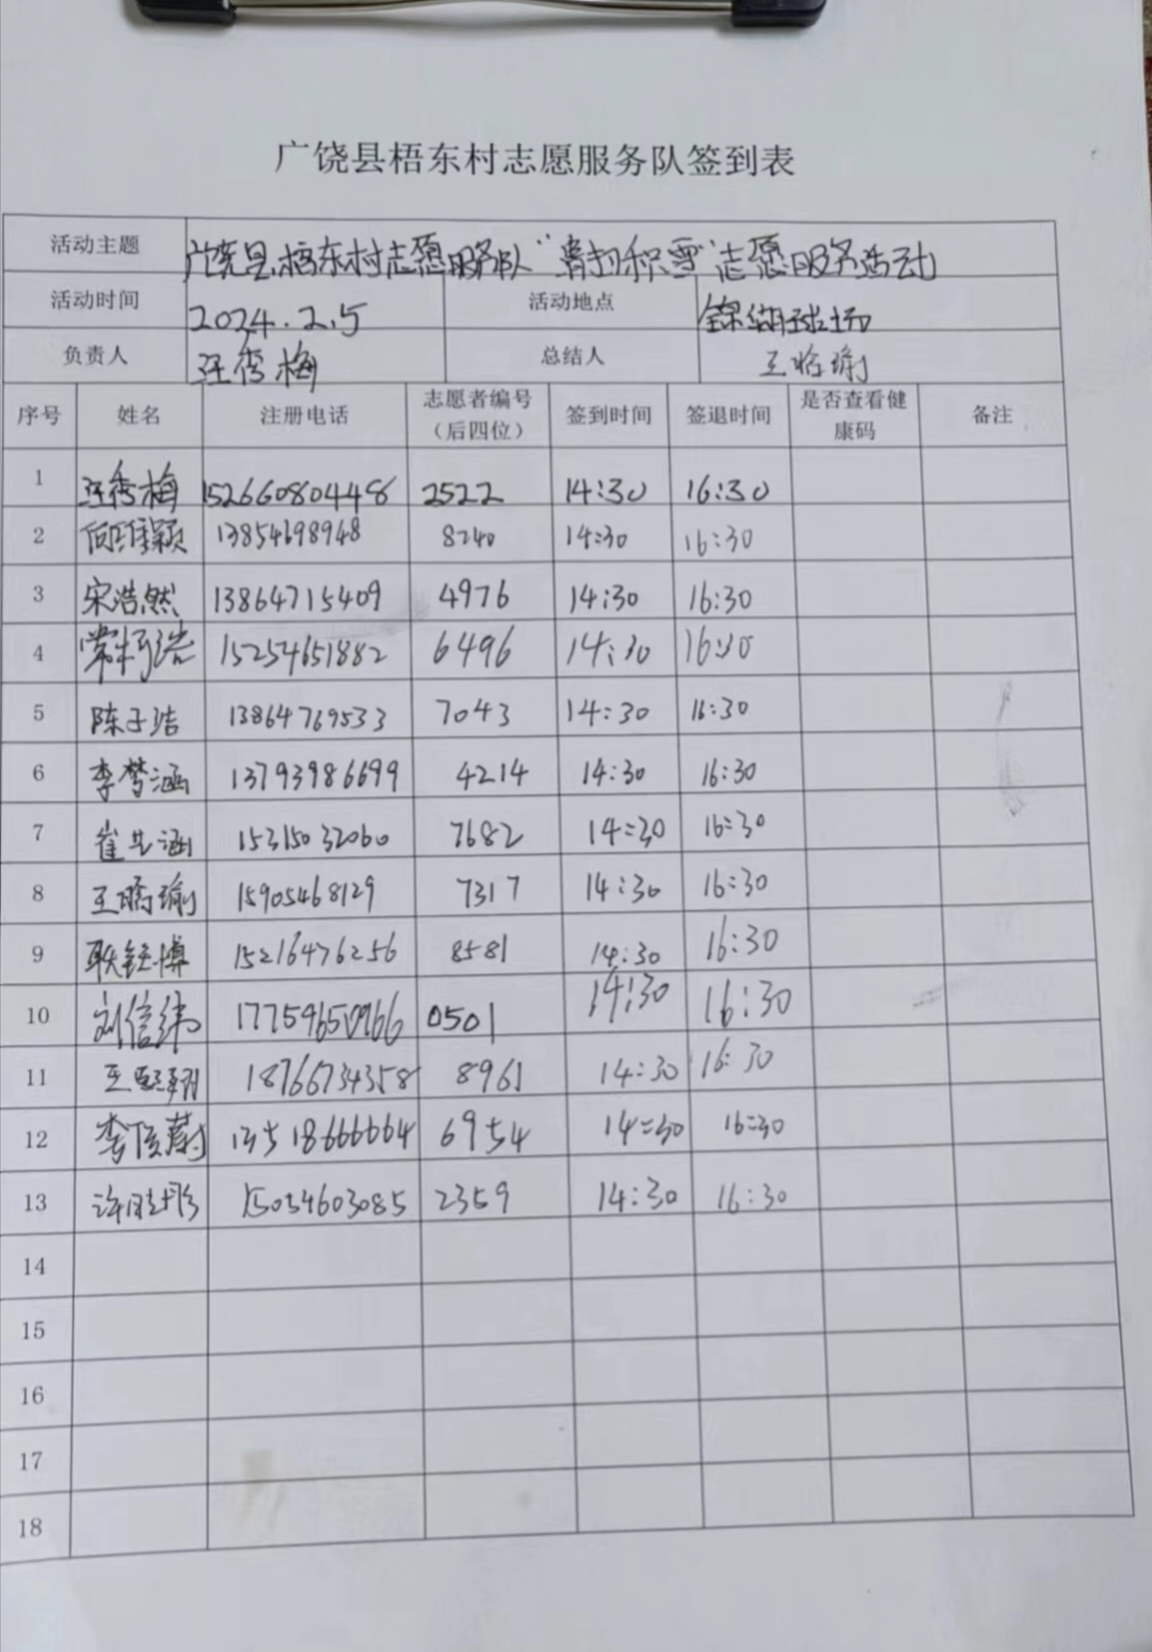 广饶县梧东村志愿服务队签到表
活动主题 广饶县梧东村志愿服务队“清扫积雪”志愿服务活动
活动时间 2024.2.5 活动地点 锦湖球场
负责人 汪秀梅 总结人 王晗瑜
序号 姓名 注册电话 志愿者编号（后四位） 签到时间 签退时间 是否查看健康码 备注
1 汪秀梅 15266080448 2522 14:30 16:30
2 13854698948 8240 14:30 16:30
3 宋浩然 13864715409 4976 14:30 16:30
4 15254651882 6496 14:30 16:30
5 陈子洁 13864769533 7043 14:30 16:30
6 李梦涵 13793986699 4214 14:30 16:30
7 15315032060 7682 14:30 16:30
8 15905468129 7317 14:30 16:30
9 耿钰博 15216476256 8581 14:30 16:30
10 刘信纬 0501 14:30 16:30
11 18766734358 8961 14:30 16:30
12 13518666664 6954 14:30 16:30
13 15054603085 2359 14:30 16:30
14
15
16
17
18